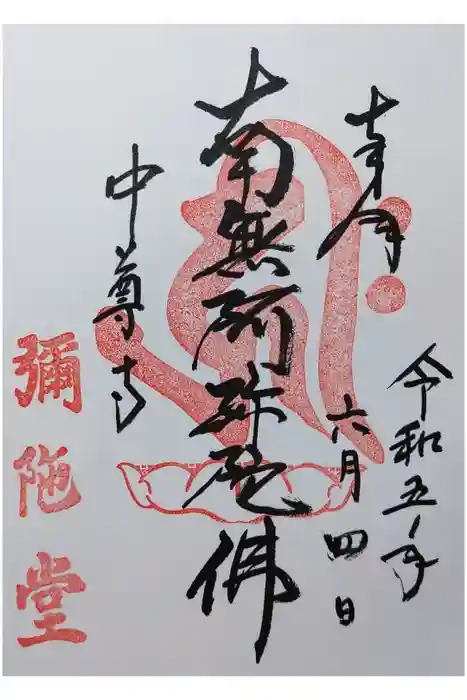 奉拝
令和五年
六月四日
南無阿弥陀佛
中尊寺
彌陀堂